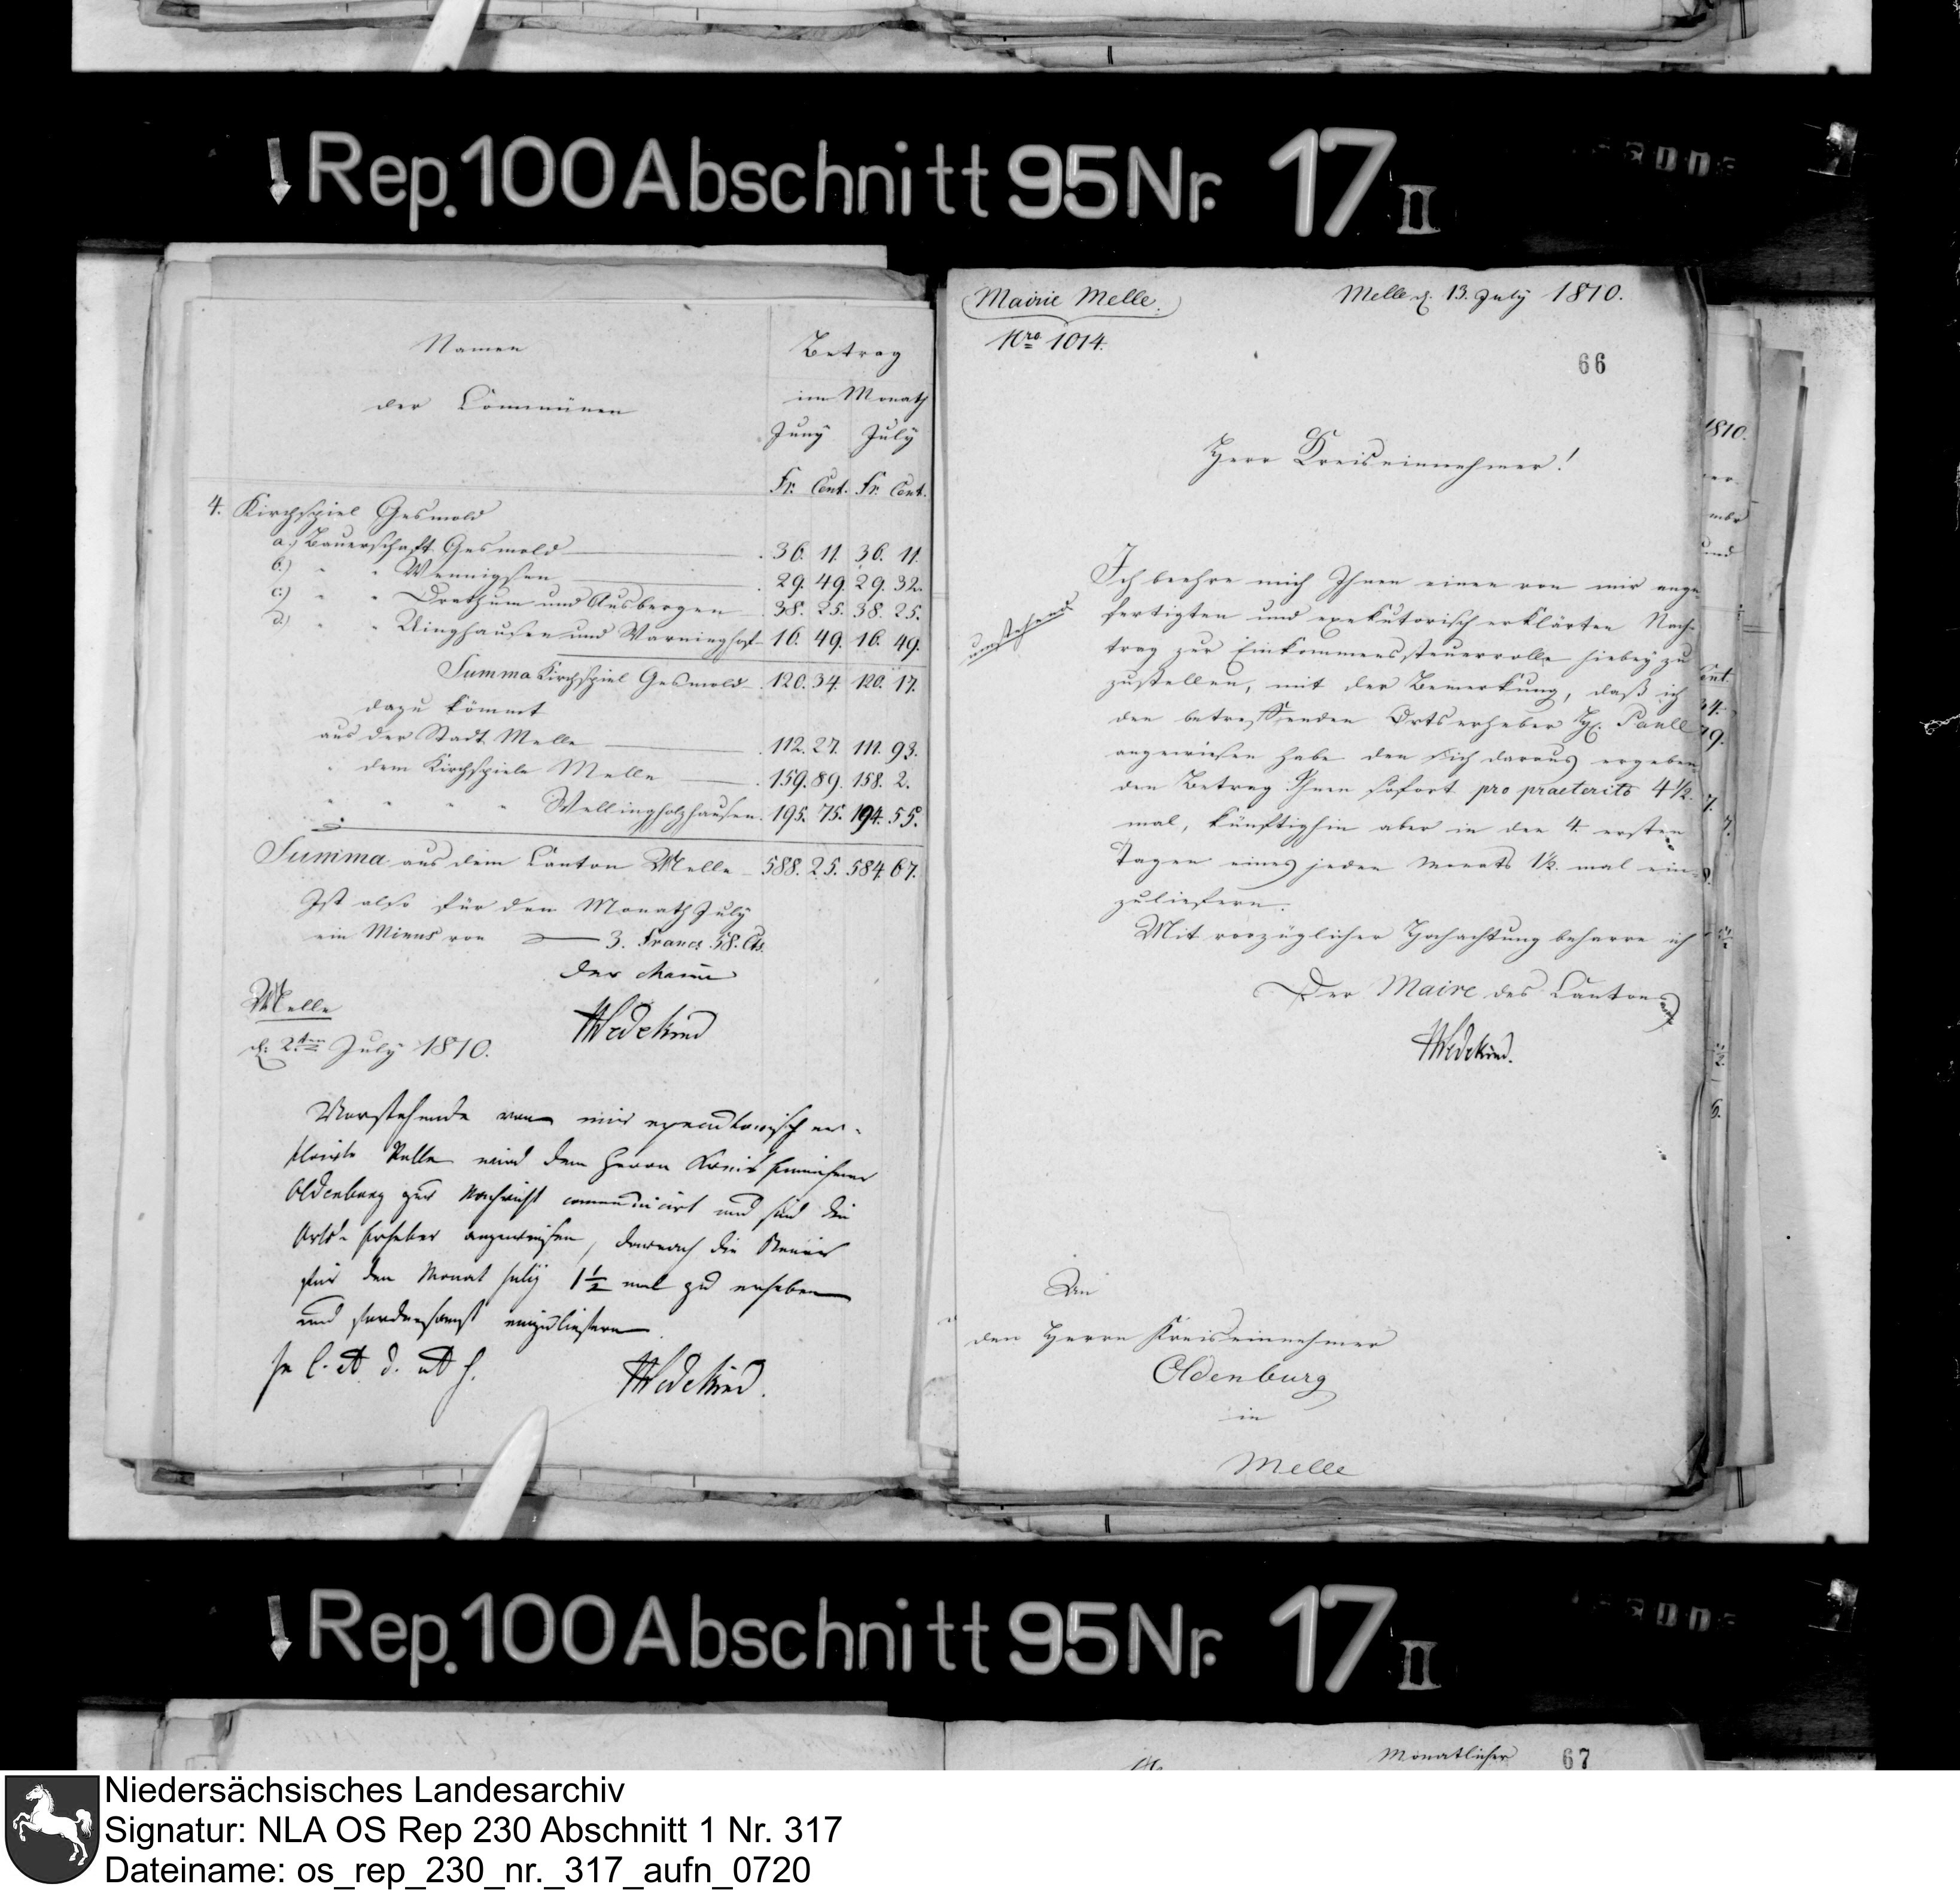 Rep. 100 Abschnitt 95 Nr. 17 II
Namen
der Communen
Betrag
im Monath
Juny July
Fr. Cent. Fr. Cent.
4. Kirchspiel Gesmold
a.) Bauerschaft Gesmold 36. 11. 36. 11.
b.) " " Wennigsen 29. 49. 29. 32.
c.) " " Dratum und Ausbergen 38. 25. 38. 25.
d.) " " Uinghausen und Warninghof 16. 49. 16. 49.
Summa Kirchspiel Gesmold 120. 34. 120. 17.
dazu kömmt
aus der Stadt Melle 112. 27. 111. 93.
" dem Kirchspiele Melle 159. 89. 158. 2.
" " " " Wellingholzhausen 195. 75. 194. 55.
Summa aus dem Canton Melle 588. 25. 584. 67.
Ist also für den Monath July
ein Minus von 3. Francs 58. Cts.
Der Maire
Wedekind
Melle
d. 2ten July 1810.
Vorstehende von mir executorisch er-
klärte Rolle wird dem Herrn Kreis Einnehmer
Oldenburg zur Nachricht communicirt und sind die
Orts-Erheber angewiesen, darnach die Steuer
für den Monat July 1 1/2 mal zu erheben
und fordersamst einzuliefern.
Wedekind.
Mairie Melle.
Nro 1014.
Melle d. 13. July 1810.
66
Herr Kreiseinnehmer!
umstehend
Ich beehre mich Ihnen einen von mir ange-
fertigten und exekutorisch erklärten Nach-
trag zur Einkommenssteuerrolle hiebey zu
zustellen, mit der Bemerkung, daß ich
den betreffenden Ortserheber H. Paull
angewiesen habe den sich daraus ergeben-
den Betrag Ihnen sofort pro praeterito 4 1/2
mal, künftighin aber in den 4. ersten
Tagen eines jeden Monats 1 1/2. mal ein-
zuliefern.
Mit vorzüglicher Hochachtung beharre ich
Der Maire des Cantons
Wedekind.
An
den Herrn Kreiseinnehmer
Oldenburg
in
Melle
1810.
Rep. 100 Abschnitt 95 Nr. 17 II
Monatlicher 67
Niedersächsisches Landesarchiv
Signatur: NLA OS Rep 230 Abschnitt 1 Nr. 317
Dateiname: os_rep_230_nr._317_aufn_0720